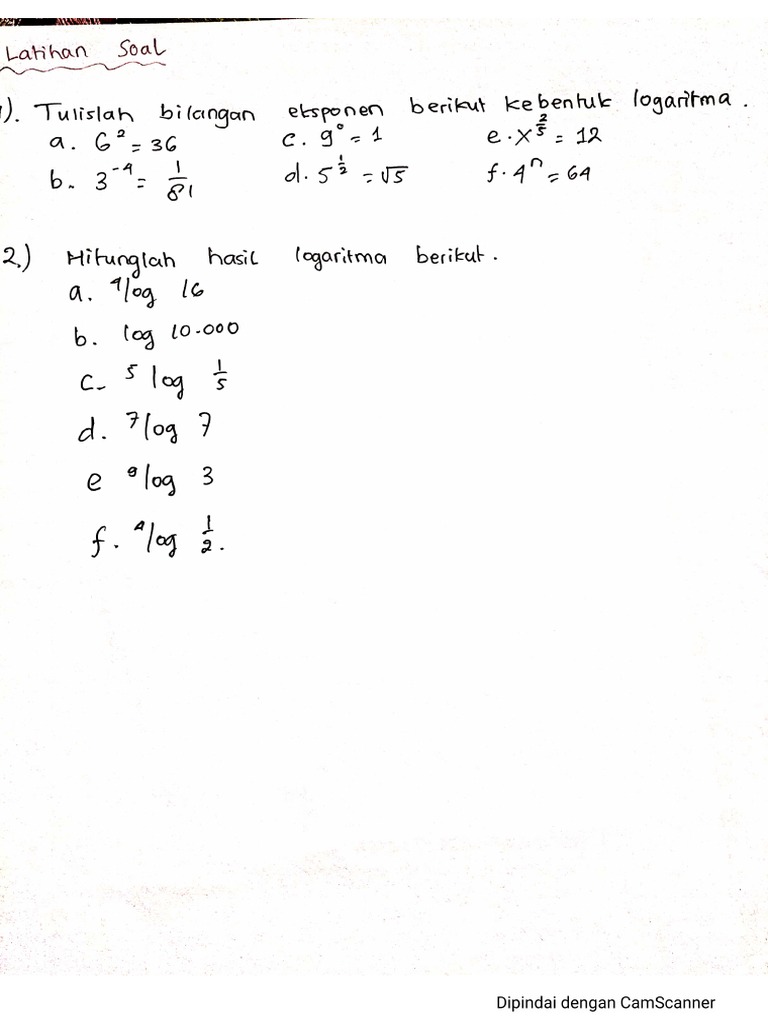 Latihan Soal
1). Tulislah bilangan eksponen berikut kebentuk logaritma.
a. 6² = 36 c. 9⁰ = 1 e. x^(2/5) = 12
b. 3⁻⁴ = 1/81 d. 5^(1/2) = √5 f. 4ⁿ = 64
2.) Hitunglah hasil logaritma berikut.
a. ⁴log 16
b. log 10.000
c. ⁵log 1/5
d. ⁷log 7
e ⁹log 3
f. ⁴log 1/2.
Dipindai dengan CamScanner